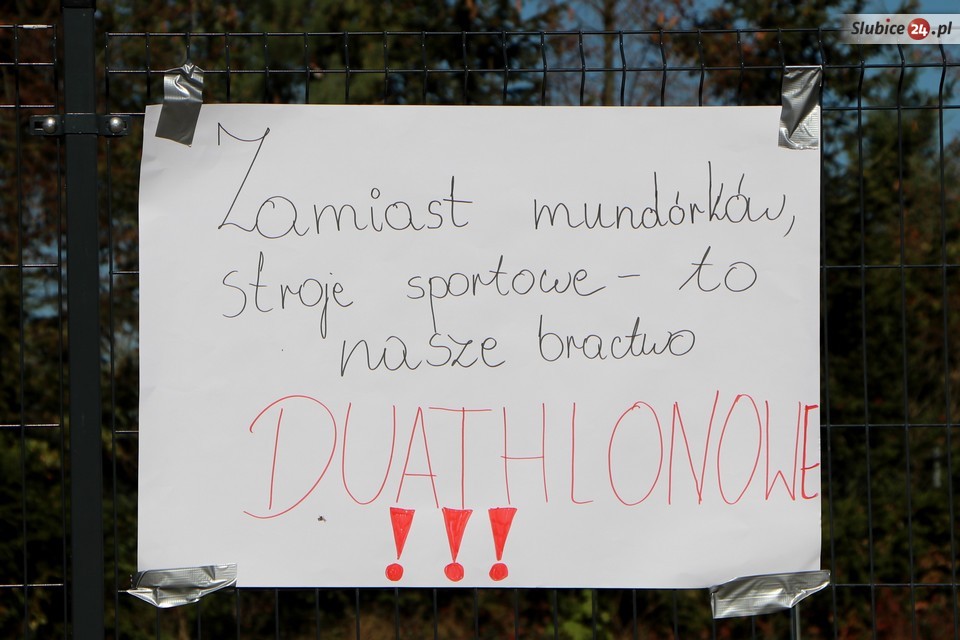 Slubice24.pl
Zamiast mundórków,
stroje sportowe - to
nasze bractwo
DUATHLONOWE
!!!